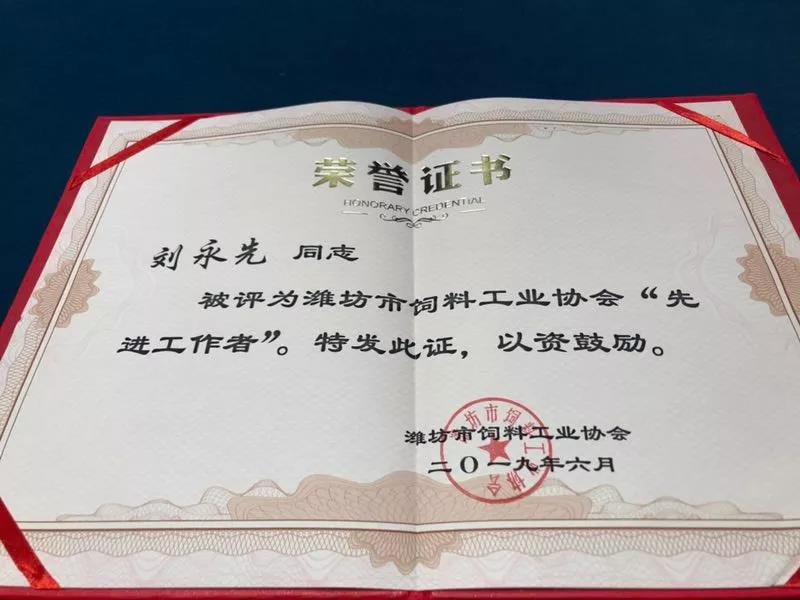 荣誉证书
HONORARY CREDENTIAL
刘永先 同志
被评为潍坊市饲料工业协会“先
进工作者”。特发此证，以资鼓励。
潍坊市饲料工业协会
二〇一九年六月
潍坊市饲料工业协会